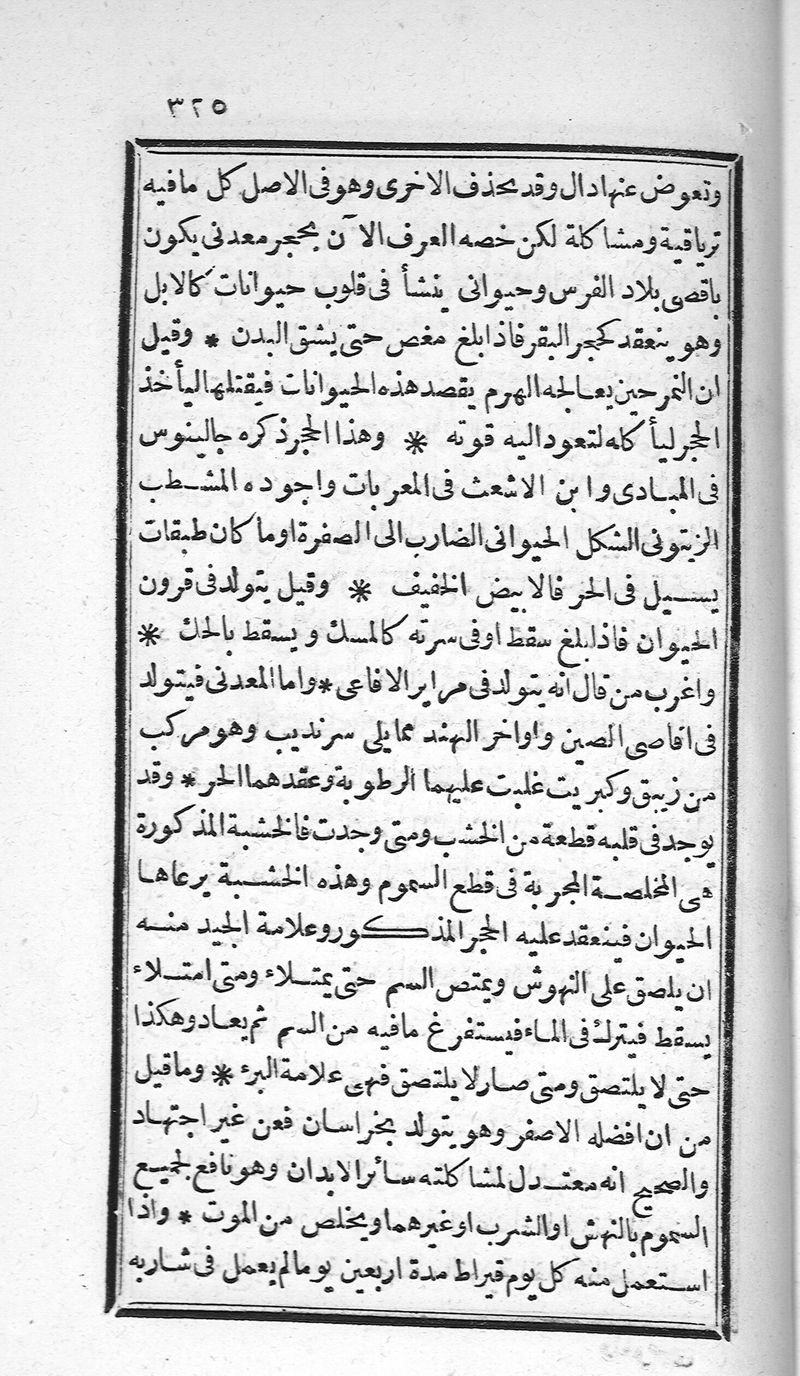 ٣٢٥
وتعوض عنها دال وقد بحذف الاخرى وهو فى الاصل كل مافيه
ترياقية ومشاكلة لكن خصه العرف الآن بحجر معدنى يكون
باقصى بلاد الفرس وحيوانى ينشأ فى قلوب حيوانات كالابل
وهو ينعقد كحجر البقر فاذا بلغ مغص حتى يشق البدن * وقيل
ان النمر حين يعالجه الهرم يقصد هذه الحيوانات فيقتلها ليأخذ
الحجر ليأكله لتعود اليه قوته * وهذا الحجر ذكره جالينوس
فى المبادى وابن الاشعث فى المعربات واجوده المشطب
الزيتونى الشكل الحيوانى الضارب الى الصفرة او ما كان طبقات
يسيل فى الحر فالابيض الخفيف * وقيل يتولد فى قرون
الحيوان فاذا بلغ سقط او فى سرته كالمسك ويسقط بالحك *
واغرب من قال انه يتولد فى مراير الافاعى * واما المعدنى فيتولد
فى اقاصى الصين واواخر الهند مما يلى سرنديب وهو مركب
من زيبق وكبريت غلبت عليهما الرطوبة وعقدهما الحر * وقد
يوجد فى قلبه قطعة من الخشب ومتى وجدت فالخشبة المذكورة
هى المخلصة المجربة فى قطع السموم وهذه الخشبة يرعاها
الحيوان فينعقد عليه الحجر المذكور وعلامة الجيد منه
ان يلصق على النهوش ويمتص السم حتى يمتلاء ومتى امتلاء
يسقط فيترك فى الماء فيستفرغ مافيه من السم ثم يعاد وهكذا
حتى لا يلتصق ومتى صار لا يلتصق فهى علامة البرء * وما قيل
من ان افضله الاصفر وهو يتولد بخراسان فعن غير اجتهاد
والصحيح انه معتدل لمشاكلته سائر الابدان وهو نافع لجميع
السموم بالنهش او الشرب او غيرهما ويخلص من الموت * واذا
استعمل منه كل يوم قيراط مدة اربعين يوما لم يعمل فى شاربه